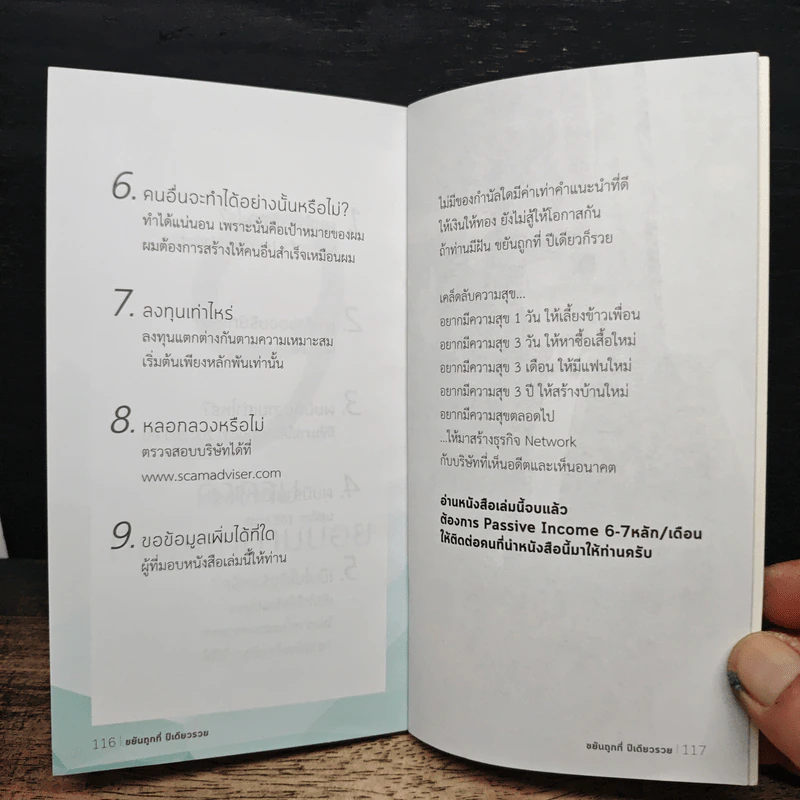 6. คนอื่นจะทำได้อย่างนั้นหรือไม่?
ทำได้แน่นอน เพราะนั่นคือเป้าหมายของผม
ผมต้องการสร้างให้คนอื่นสำเร็จเหมือนผม
7. ลงทุนเท่าไหร่
ลงทุนแตกต่างกันตามความเหมาะสม
เริ่มต้นเพียงหลักพันเท่านั้น
8. หลอกลวงหรือไม่
ตรวจสอบบริษัทได้ที่
www.scamadviser.com
9. ขอข้อมูลเพิ่มได้ที่ใด
ผู้ที่มอบหนังสือเล่มนี้ให้ท่าน
116 | ขยันถูกที่ ปีเดียวรวย
ไม่มีของกำนัลใดมีค่าเท่าคำแนะนำที่ดี
ให้เงินให้ทอง ยังไม่สู้ให้โอกาสกัน
ถ้าท่านมีฝัน ขยันถูกที่ ปีเดียวก็รวย
เคล็ดลับความสุข...
อยากมีความสุข 1 วัน ให้เลี้ยงข้าวเพื่อน
อยากมีความสุข 3 วัน ให้หาซื้อเสื้อใหม่
อยากมีความสุข 3 เดือน ให้มีแฟนใหม่
อยากมีความสุข 3 ปี ให้สร้างบ้านใหม่
อยากมีความสุขตลอดไป
...ให้มาสร้างธุรกิจ Network
กับบริษัทที่เห็นอดีตและเห็นอนาคต
อ่านหนังสือเล่มนี้จบแล้ว
ต้องการ Passive Income 6-7หลัก/เดือน
ให้ติดต่อคนที่นำหนังสือนี้มาให้ท่านครับ
ขยันถูกที่ ปีเดียวรวย | 117